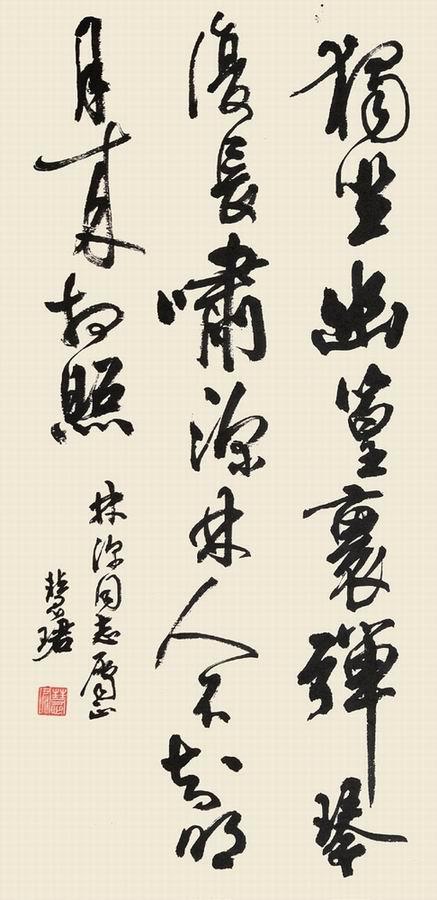 獨坐幽篁裏彈琴
復長嘯深林人不知明
月來相照
林深同志屬正
慧珺